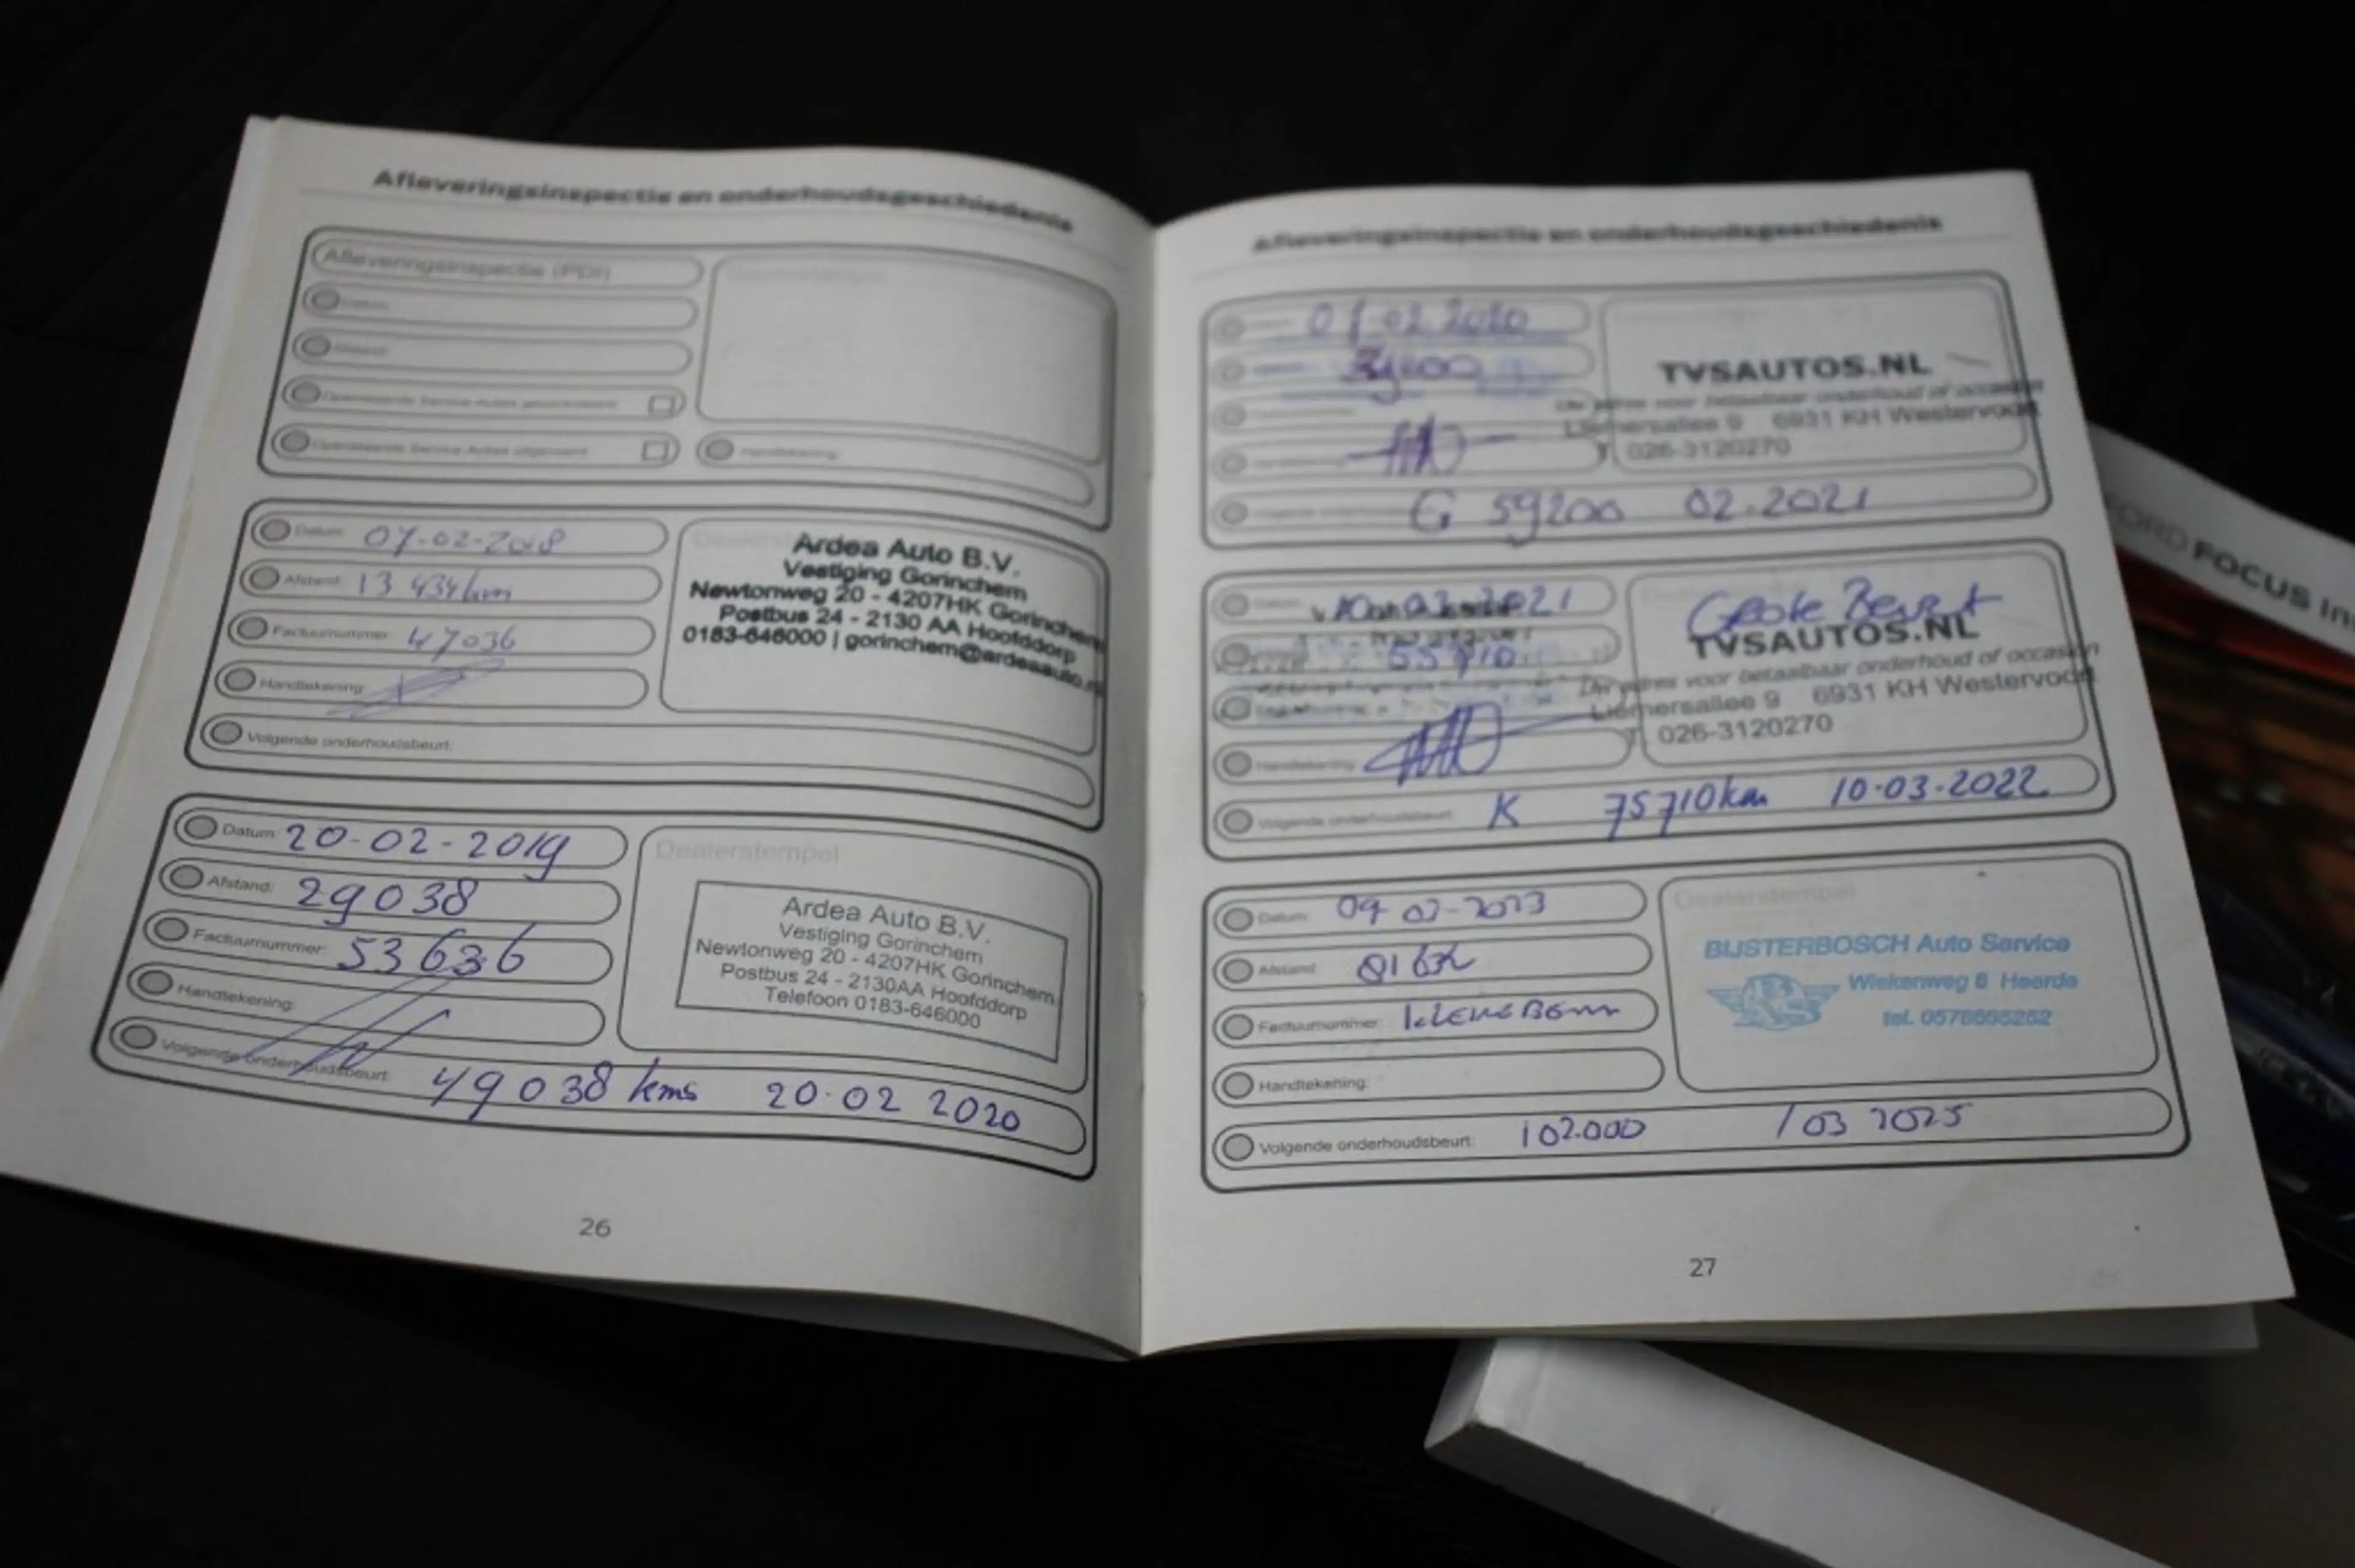 Afleveringsinspectie en onderhoudsgeschiedenis
Afleveringsinspectie (PDI)
Datum:
Afstand:
Openstaande Service Acties gecontroleerd
Openstaande Service Acties uitgevoerd
Handtekening:
Datum: 07-02-2018
Afstand: 13 434 km
Factuurnummer: 47036
Handtekening:
Volgende onderhoudsbeurt:
Ardea Auto B.V.
Vestiging Gorinchem
Newtonweg 20 - 4207HK Gorinchem
Postbus 24 - 2130 AA Hoofddorp
0183-646000 | gorinchem@ardeaauto.n
Datum: 20-02-2019
Afstand: 29038
Factuurnummer: 53636
Handtekening:
Volgende onderhoudsbeurt: 49038 kms 20-02 2020
Dealerstempel
Ardea Auto B.V.
Vestiging Gorinchem
Newtonweg 20 - 4207HK Gorinchem
Postbus 24 - 2130AA Hoofddorp
Telefoon 0183-646000
26
Afleveringsinspectie en onderhoudsgeschiedenis
02 2020
TVSAUTOS.NL
adres voor betaalbaar onderhoud of occasion
Liemersallee 9 6931 KH Westervoort
T. 026-3120270
G 59200 02.2021
2021
55710
Handtekening:
Grote Beurt
TVSAUTOS.NL
adres voor betaalbaar onderhoud of occasion
Liemersallee 9 6931 KH Westervoort
T. 026-3120270
Volgende onderhoudsbeurt: K 75710 km 10-03-2022
Datum: 09 03-2023
Afstand:
Factuurnummer:
Handtekening:
Volgende onderhoudsbeurt: 102.000 / 03 2025
Dealerstempel
BIJSTERBOSCH Auto Service
Wiekenweg 8 Heerde
tel. 0578695252
27
FORD FOCUS In